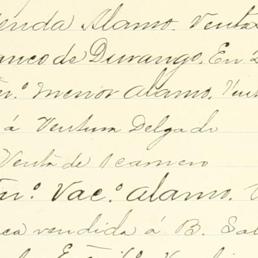 enda Alamo. Venta
anco de Durango. En 2
n.º Menor Alamo. Vent
á Ventura Delgado
Venta de
n.º Vac.º Alamo.
ca vendida á B. Sal